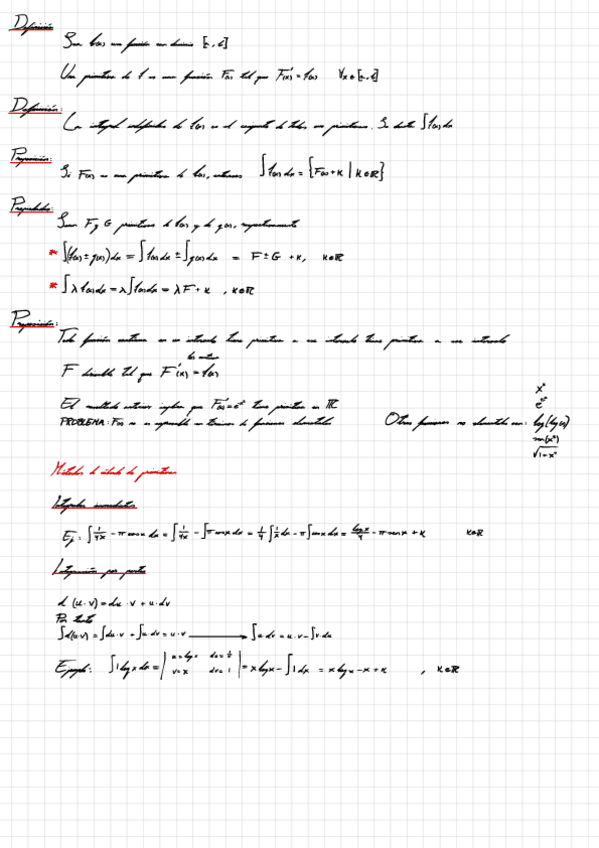 Definición
Sea f(x) una función con dominio [a,b]
Una primitiva de f es una función F(x) tal que F'(x) = f(x) ∀x∈[a,b]
Definición:
La integral indefinida de f(x) es el conjunto de todas sus primitivas. Se denota ∫f(x)dx
Proposición:
Si F(x) es una primitiva de f(x), entonces ∫f(x)dx = {F(x)+K | K∈ℝ}
Propiedades:
Sean F y G primitivas de f(x) y de g(x), respectivamente
* ∫(f(x)±g(x))dx = ∫f(x)dx ± ∫g(x)dx = F±G+K, K∈ℝ
* ∫λf(x)dx = λ∫f(x)dx = λF+K , K∈ℝ
Proposición:
Toda función continua en un intervalo tiene primitiva a ese intervalo tiene primitiva a ese intervalo
F derivable tal que F'(x) = f(x)
El resultado anterior implica que tiene primitiva en ℝ
PROBLEMA: F(x) no es expresable en términos de funciones elementales
Otras funciones no elementales son: log(log(x))
sen(x²)
Métodos de cálculo de primitivas
Integrales inmediatas
Ej: K∈ℝ
Integración por partes
d(u·v) = du·v + u·dv
Por tanto
∫d(u·v) = ∫du·v + ∫u·dv = u·v → ∫u·dv = u·v - ∫v·du
Ejemplo: ∫1 log x dx = | u = log x du = 1/x v = x dv = 1 | = x log x - ∫1 dx = x log x - x + K , K∈ℝ